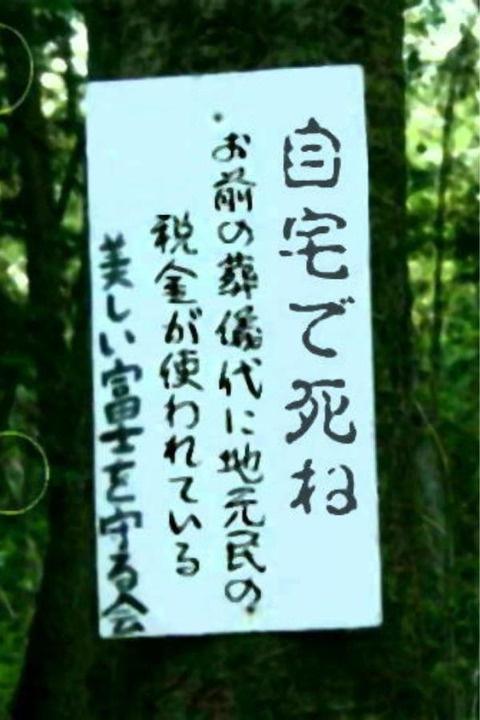 自宅で死ね
・お前の葬儀代に地元民の
税金が使われている
美しい富士を守る会